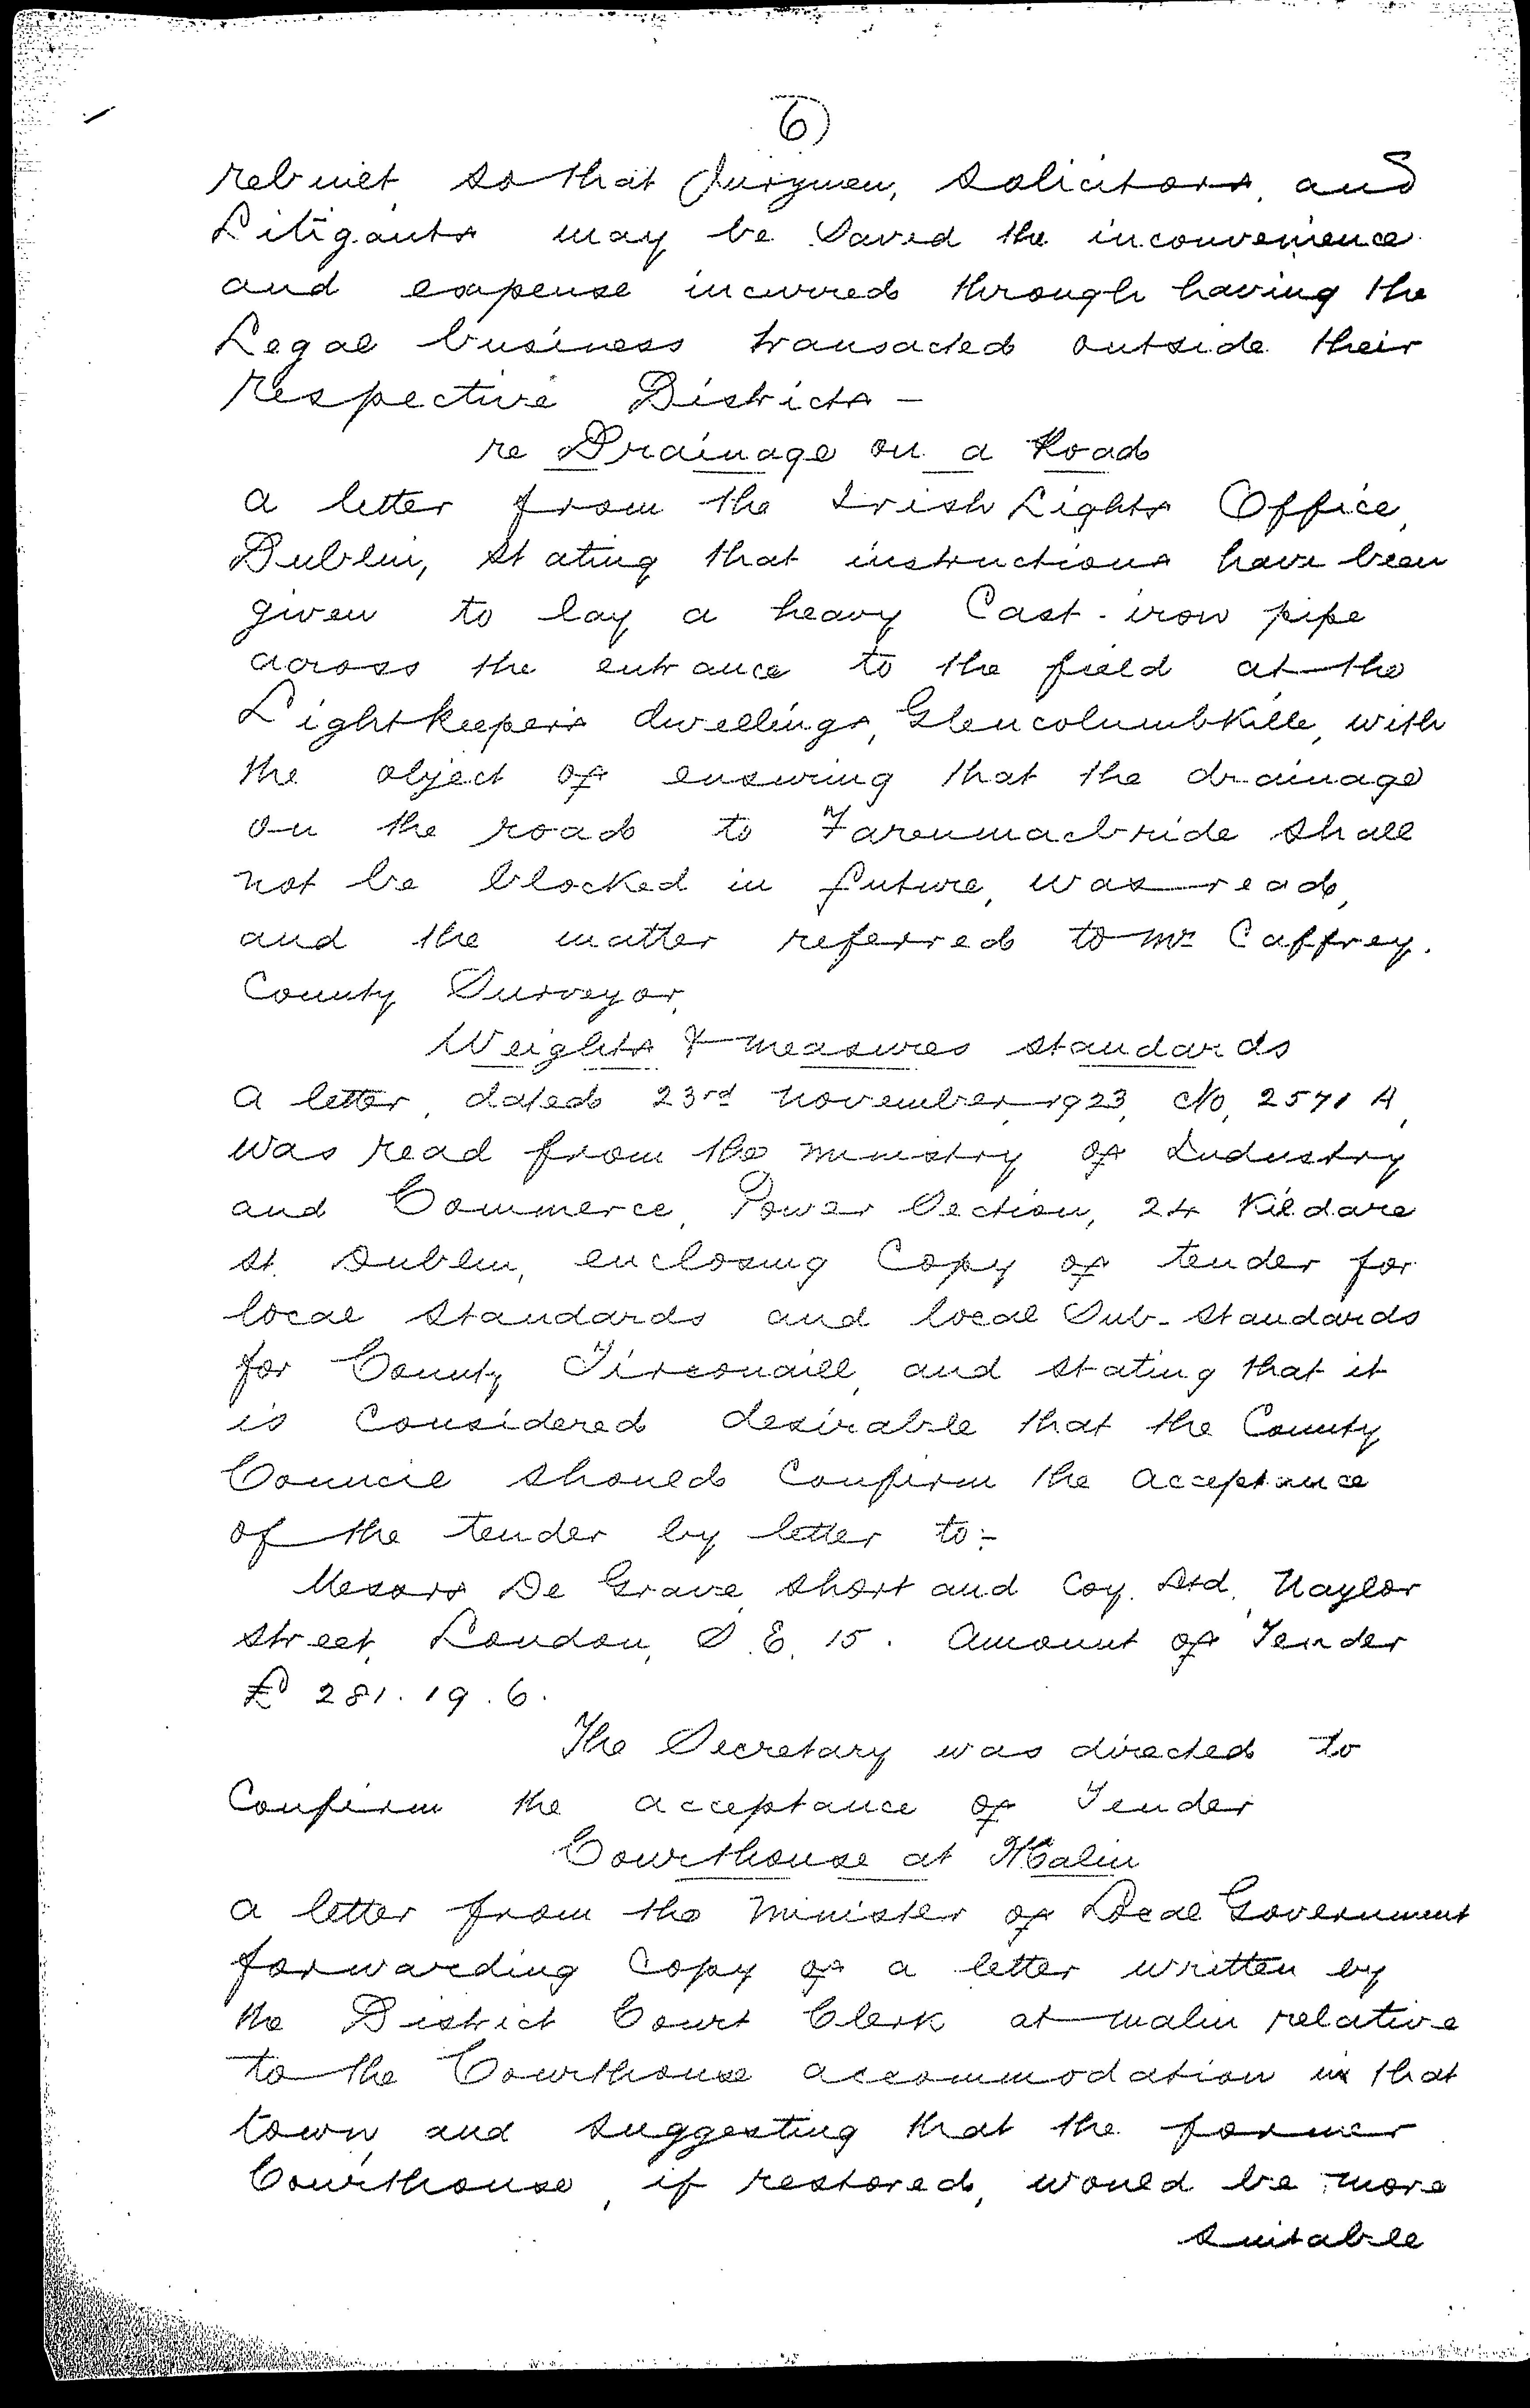 6)
rebuilt so that Jurymen, Solicitors, and
Litigants may be Saved the inconvenience
and expense incurred through having the
Legal business transacted outside their
respective Districts -
re Drainage on a Road
A letter from the Irish Lights Office,
Dublin, stating that instructions have been
given to lay a heavy Cast-iron pipe
across the entrance to the field at the
Lightkeeper's dwellings, Glencolumbkille, with
the object of ensuring that the drainage
on the road to Farenmacbride shall
not be blocked in future, was read,
and the matter referred to Mr Caffrey.
County Surveyor.
Weights & Measures Standards
A letter, dated 23rd November, 1923, No, 2571 A,
was read from the Ministry of Industry
and Commerce, Power Section, 24 Kildare
St. Dublin, enclosing Copy of tender for
local Standards and local Sub-Standards
for County Tirconaill, and stating that it
is Considered desirable that the County
Council should Confirm the acceptance
of the tender by letter to:-
Messrs De Grave, Short and Coy. Ltd., Naylor
Street, London, S.E. 15. Amount of Tender
£281.19.6.
The Secretary was directed to
Confirm the acceptance of Tender
Courthouse at Malin
A letter from the Minister of Local Government
forwarding Copy of a letter written by
the District Court Clerk at Malin relative
to the Courthouse accommodation in that
town, and suggesting that the former
Courthouse, if restored, would be more
suitable